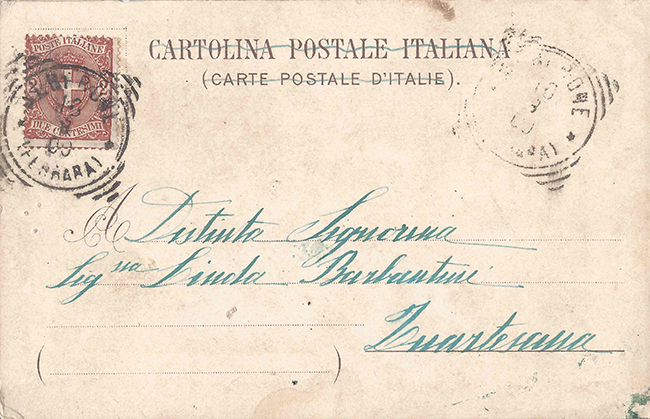 POSTE ITALIANE
DUE CENTESIMI
CARTOLINA POSTALE ITALIANA
(CARTE POSTALE D'ITALIE).
10
00
(FERRARA)
10
00
A Distinta Signorina
Sig na Linda Barbantini
Quartesana